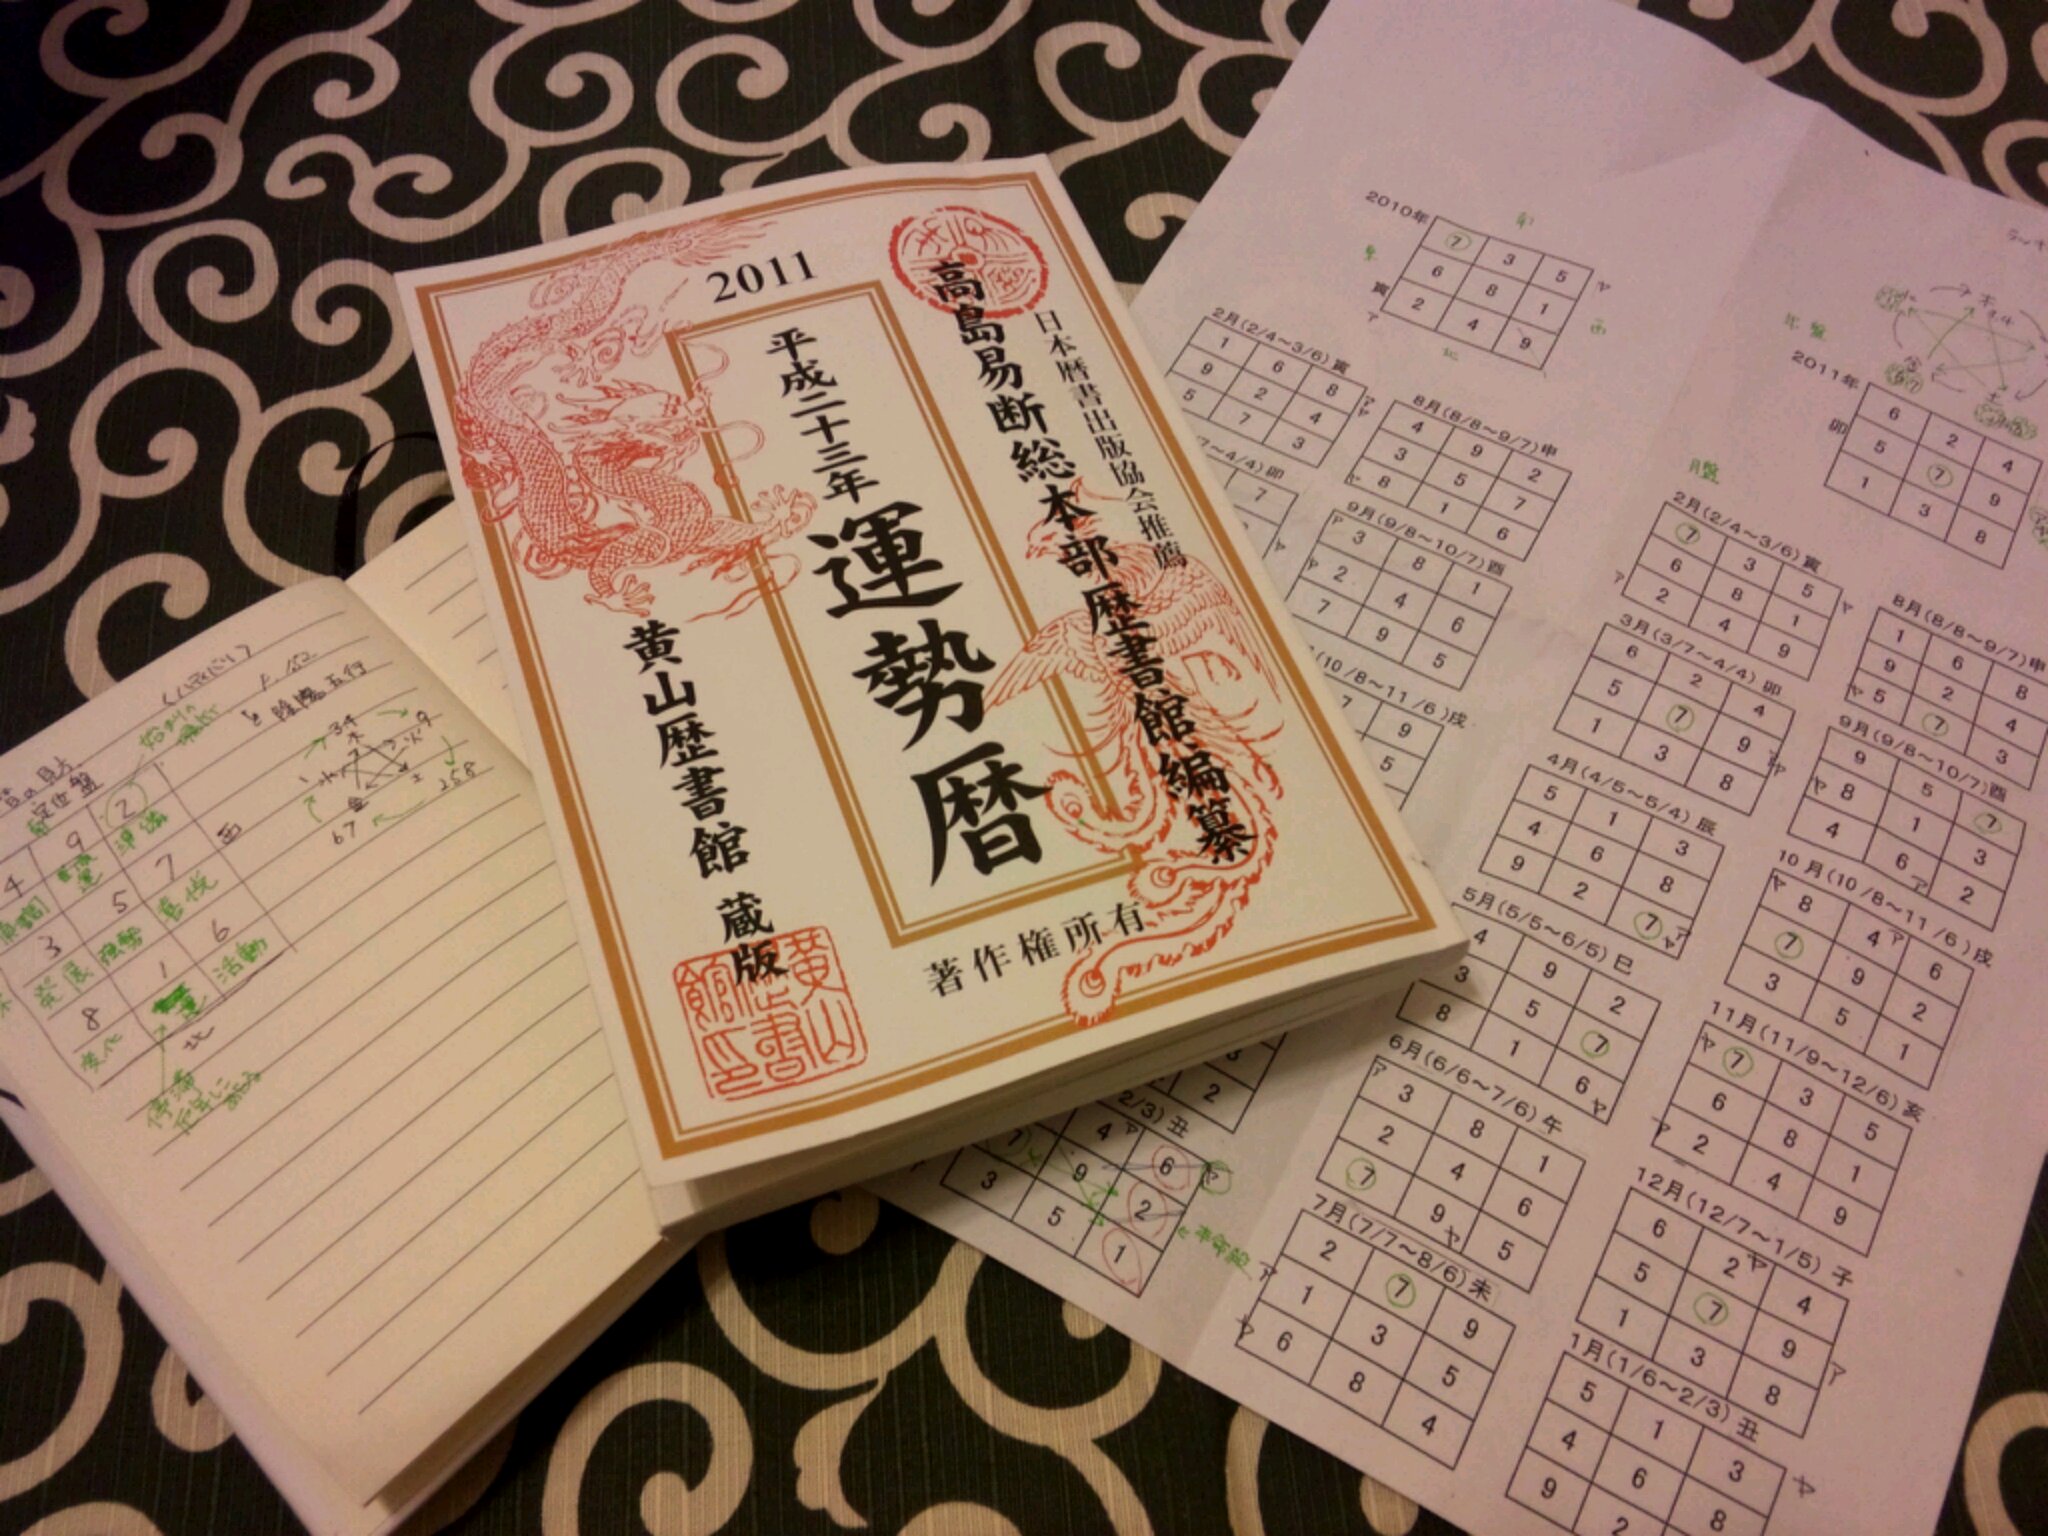 2011
日本暦書出版協会推薦
高島易断総本部歴書館編纂
平成二十三年
運勢暦
黄山歴書館 蔵版
著作権所有
黄山
歴書
館之印
2010年
7 3 5
6 8 1
2 4 9
ヤ
寅
ア
2月(2/4~3/6)寅
1 6 8
9 2 4
5 7 3
7~4/4)卯
7
8月(8/8~9/7)申
4 9 2
3 5 7
8 1 6
9月(9/8~10/7)酉
3 8 1
2 4 6
7 9 5
(10/8~11/6)戌
7 9
5
3
2
2/3)丑
7 4 6
9 2
3 5 1
本命殺
年盤
2011年
卯
6 2 4
5 7 9
1 3 8
月盤
2月(2/4~3/6)寅
7 3 5
6 8 1
2 4 9
3月(3/7~4/4)卯
6 2 4
5 7 9
1 3 8
4月(4/5~5/4)辰
5 1 3
4 6 8
9 2 7
5月(5/5~6/5)巳
4 9 2
3 5 7
8 1 6
6月(6/6~7/6)午
3 8 1
2 4 6
7 9 5
7月(7/7~8/6)未
2 7 9
1 3 5
6 8 4
8月(8/8~9/7)申
1 6 8
9 2 4
5 7 3
9月(9/8~10/7)酉
9 5 7
8 1 3
4 6 2
10月(10/8~11/6)戌
8 4 6
7 9 2
3 5 1
11月(11/9~12/6)亥
7 3 5
6 8 1
2 4 9
12月(12/7~1/5)子
6 2 4
5 7 9
1 3 8
1月(1/6~2/3)丑
5 1 3
4 6 8
9 2
定位盤
4 9 2
3 5 7
8 1 6
準備
発展
活動
変化
停滞
西
北
五行
34
木
火9
土
258
金
67
水
1